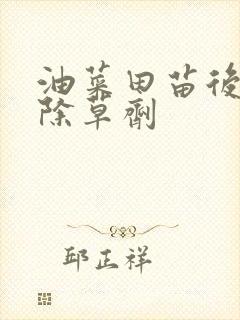 油菜田苗後
除草劑
邱正祥